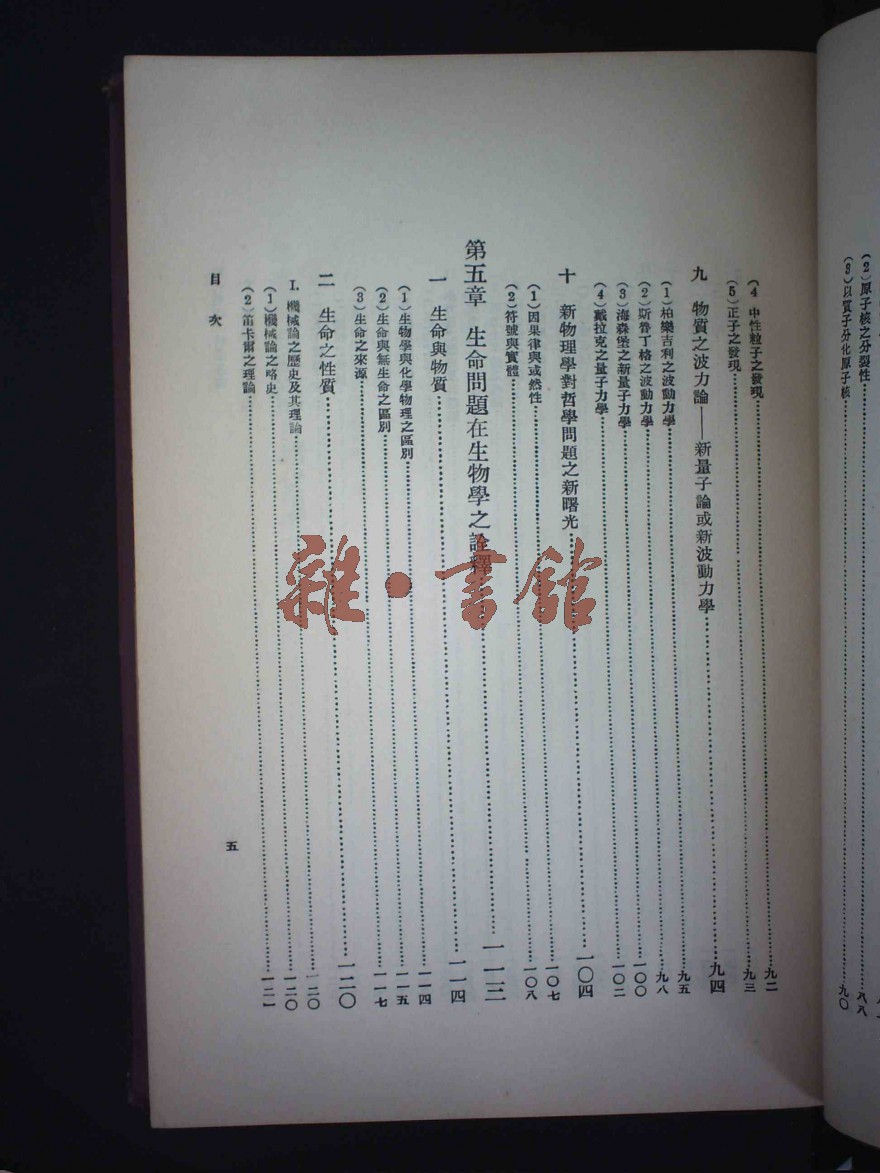 (2)原子核之分裂性……八八
(3)以質子分化原子核……九〇
(4 中性粒子之發現……九二
(5)正子之發現……九三
九 物質之波力論——新量子論或新波動力學……九四
(1)柏樂吉利之波動力學……九五
(2)斯魯丁格之波動力學……九八
(3)海森堡之新量子力學……一〇〇
(4)戴拉克之量子力學……一〇二
十 新物理學對哲學問題之新曙光……一〇四
(1)因果律與或然性……一〇七
(2)符號與實體……一〇八
第五章 生命問題在生物學之詮釋……一一三
一 生命與物質……一一四
(1)生物學與化學物理之區別……一一四
(2)生命與無生命之區別……一一五
(3)生命之來源……一一七
二 生命之性質……一二〇
I. 機械論之歷史及其理論……一二〇
(1)機械論之略史……一二〇
(2)笛卡爾之理論……一二一
目次
五
雜·書館